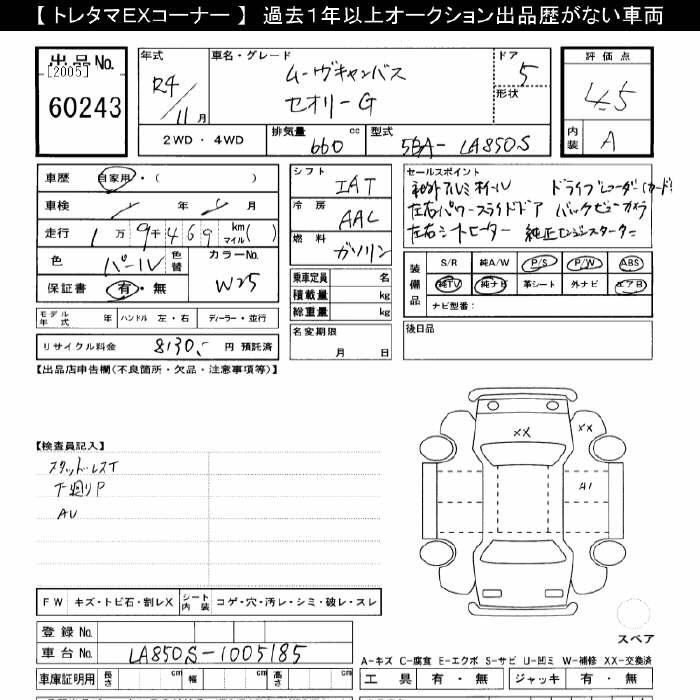 【 トレタマEXコーナー 】 過去1年以上オークション出品歴がない車両
出品No.
[2005]
60243
年式
R4/11月
車名・グレード
ムーヴキャンバス
セオリーG
ドア
5
形状
2WD ・ 4WD
排気量 660 cc
型式 5BA- LA850S
評価点
4.5
内装 A
車歴 自家用・( )
車検 年 月
走行 1万9千469 km マイル( )
色 パール 色替
カラーNo. W25
保証書 有・無
モデル年式 年 ハンドル 左・右 ディーラー・並行
リサイクル料金 8130.- 円 預託済
シフト IAT
冷房 AAC
燃料 ガソリン
乗車定員 名
積載量 kg
総重量 kg
名変期限
月 日
セールスポイント
社外アルミホイール ドライブレコーダー(カード)
左右パワースライドドア バックビューカメラ
左右シートヒーター 純正エンジンスターター
装備品
S/R 純A/W P/S P/W ABS
純TV 純ナビ 革シート 外ナビ エアB
ナビ型番:
後日品
【出品店申告欄(不良箇所・欠品・注意事項等)】
【検査員記入】
スタッドレスT
下廻りP
AU
XX
XX
A1
スペア
FW キズ・トビ石・割レX シート内装 コゲ・穴・汚レ・シミ・破レ・スレ
登録No.
車台No. LA850S-1005185
車庫証明用 長さ cm 幅 cm 高さ cm
A-キズ C-腐食 E-エクボ S-サビ U-凹ミ W-補修 XX-交換済
工具 有・無 ジャッキ 有・無